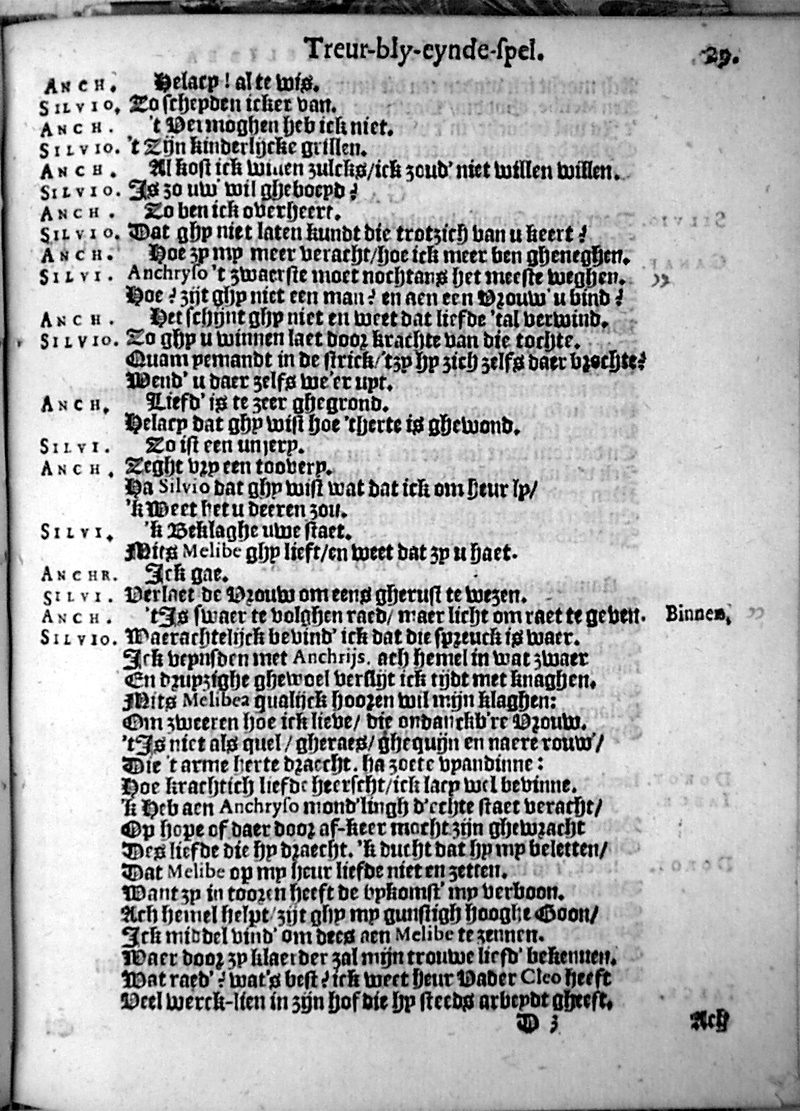 Treur-bly-eynde-spel. 29.
ANCH. Helaey! al te wis.
SILVIO. Zo scheyden icker van.
ANCH. 't Vermoghen heb ick niet.
SILVIO. 't Zijn kinderlijcke grillen.
ANCH. Al kost ick willen zulcks/ick zoud' niet willen willen.
SILVIO. Is zo uw' wil gheboeyd?
ANCH. Zo ben ick overheert.
SILVIO. Wat ghy niet laten kundt die trotzich van u keert?
ANCH. Hoe zy my meer veracht/hoe ick meer ben gheneghen.
SILVI. Anchryso 't zwaerste moet nochtans het meeste weghen. ,,
Hoe? zijt ghy niet een man? en aen een Vrouw' u bind?
ANCH. Het schijnt ghy niet en weet dat liefde 'tal verwind.
SILVIO. Zo ghy u winnen laet door krachte van die tochte.
Quam yemandt in de strick/'tzy hy zich zelfs daer brochte?
Wend' u daer zelfs we'er uyt.
ANCH. Liefd' is te zeer ghegrond.
Helaey dat ghy wist hoe 'therte is ghewond.
SILVI. Zo ist een unjery.
ANCH. Zeght vry een toovery.
Ha Silvio dat ghy wist wat dat ick om heur ly/
'k Weet het u deeren zou.
SILVI. 'k Beklaghe uwe staet.
Mits Melibe ghy lieft/en weet dat zy u haet.
ANCHR. Ick gae.
SILVI. Verlaet de Vrouw om eens gherust te wezen.
ANCH. 'tIs swaer te volghen raed/ maer licht om raet te geven. Binnen, ,,
SILVIO. Waerachtelijck bevind' ick dat die spreuck is waer.
Ick veynsden met Anchrijs. ach hemel in wat zwaer
En druyzighe ghewoel verslijt ick tijdt met knaghen.
Mits Melibea qualijck hooren wil mijn klaghen:
Om zweeren hoe ick lieve/ die ondanckb're Vrouw.
'tIs niet als quel/ gheraes/ ghequijn en naere rouw'/
Die 't arme herte draecht. ha zoete vyandinne:
Hoe krachtich liefde heerscht/ick laey wel bevinne.
'k Heb aen Anchryso mond'lingh d'echte staet veracht/
Op hope of daer door af-keer mocht zijn ghewracht
Des liefde die hy draecht. 'k ducht dat hy my beletten/
Dat Melibe op my heur liefde niet en zetten.
Want zy in tooren heeft de bykomst' my verboon.
Ach hemel helpt/zijt ghy my gunstigh hooghe Goon/
Ick middel vind' om dees aen Melibe te zennen.
Waer door zy klaerder zal mijn trouwe liefd' bekennen.
Wat raed'? wat's best? ick weet heur Vader Cleo heeft
Veel werck-lien in zijn hof die hy steeds arbeydt gheeft.
D 3 Ach